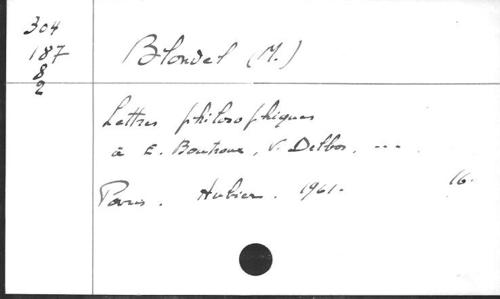 304
187
8
2
Blondel (M.)
Lettres philosophiques
à E. Boutroux, V. Delbos, ---
Paris. Aubier. 1961.
16.